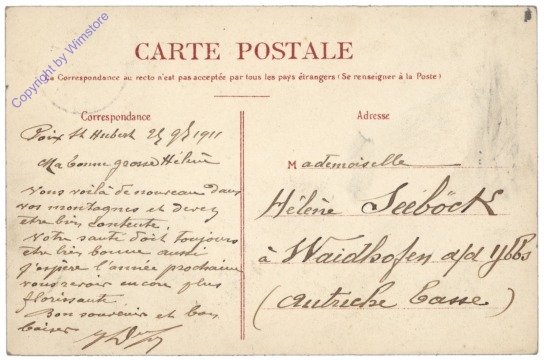 Copyright by Wimstore
CARTE POSTALE
La Correspondance au recto n'est pas acceptée par tous les pays étrangers (Se renseigner à la Poste)
Correspondance
Poix St Hubert 25 9bre 1911
Ma bonne grosse Hélène
Vous voilà de nouveau dans
vos montagnes et devez
etre bien contente.
Votre santé doit toujours
etre bien bonne aussi
J'espère l'année prochaine
vous revoir encore plus
florissante
Bon souvenir et bon
baiser
Adresse
Mademoiselle
Hélène Seeböck
à Waidhofen a/d Ybbs
(Autriche basse)